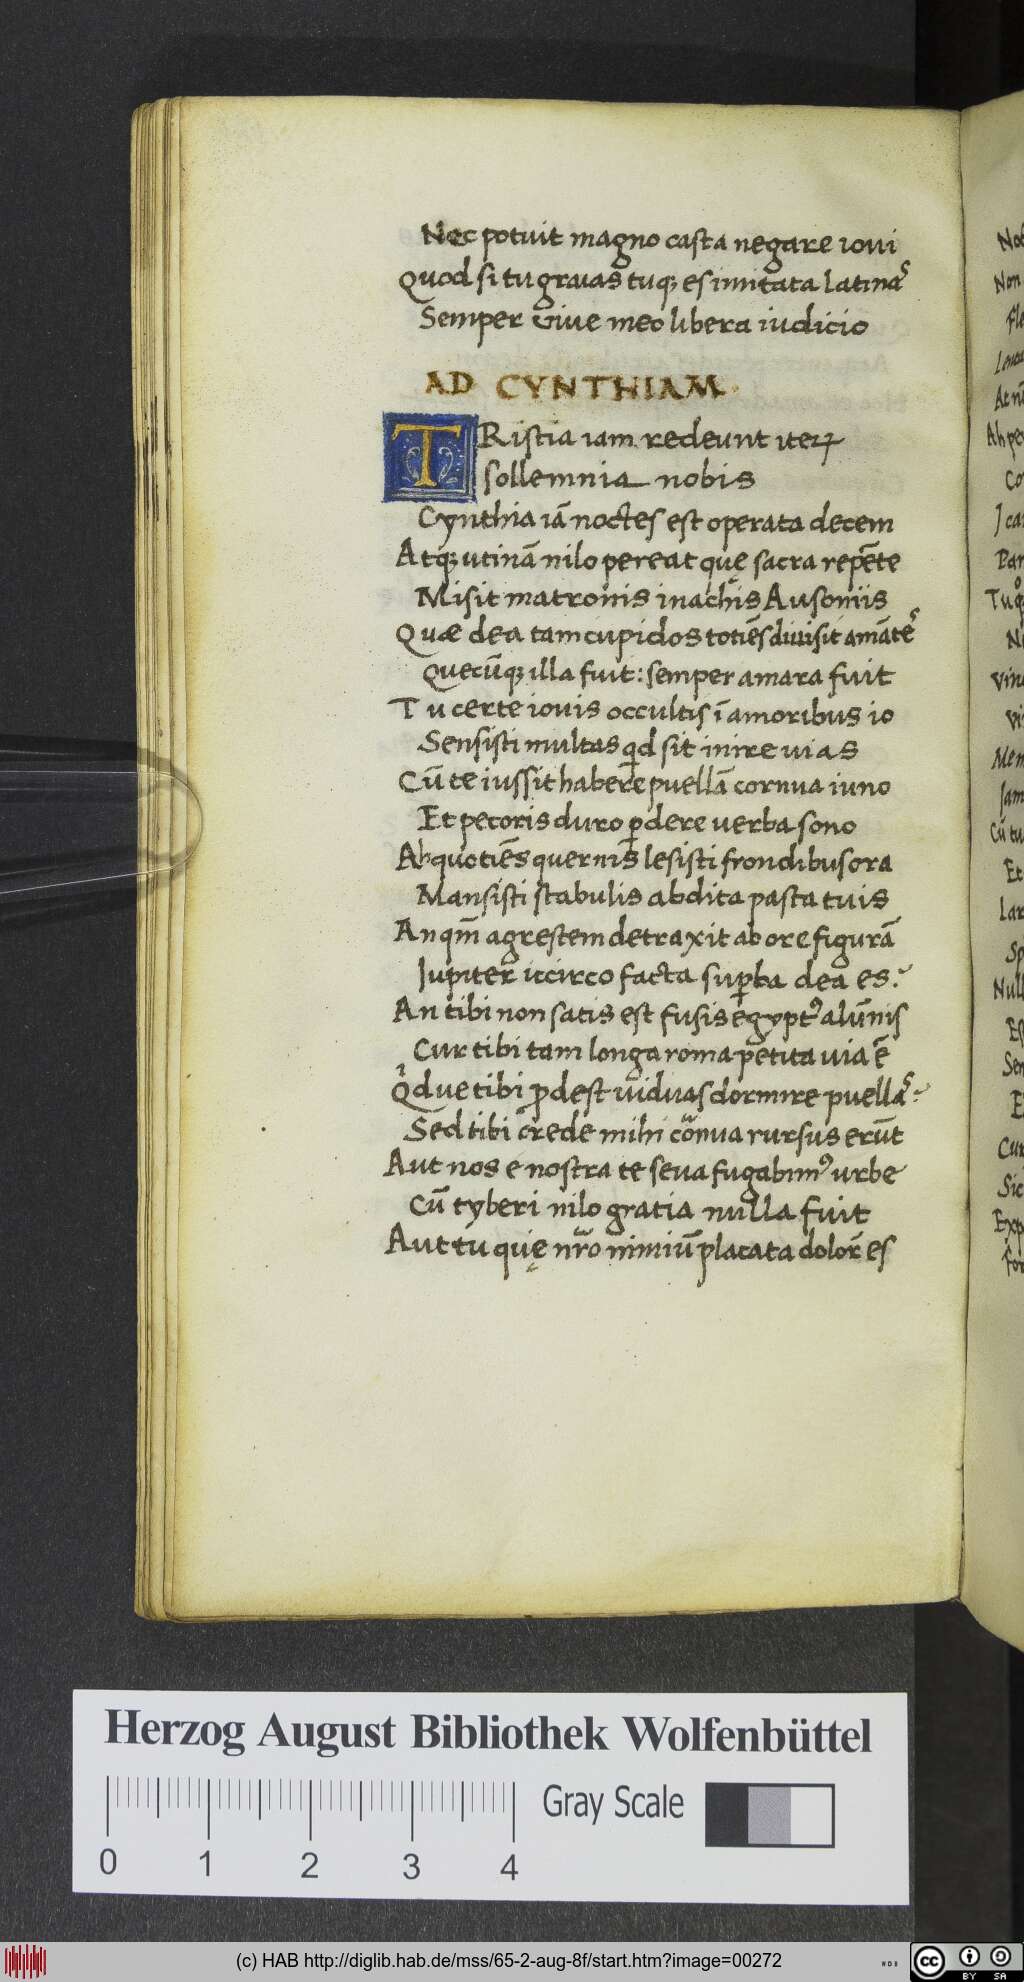 Nec potuit magno casta negare ioui
Quod si tu graias tuq; es imitata latinas
Semper uiue meo libera iudicio
AD CYNTHIAM
TRistia iam redeunt iteꝝ
sollemnia nobis
Cynthia iã noctes est operata decem
Atq; utinã nilo pereat quę sacra repẽte
Misit matronis inachis Ausoniis
Quæ dea tam cupidos totiẽs diuisit amãtes
Quecũq; illa fuit: semper amara fuit
Tu certe iouis occultis ĩ amoribus io
Sensisti multas qd sit inire uias
Cũ te iussit habere puellã cornua iuno
Et pecoris duro ꝑdere uerba sono
Ah quotiẽs quernis lesisti frondibus ora
Mansisti stabulis abdita pasta tuis
An qm̃ agrestem detraxit ab ore figurã
Jupiter iccirco facta suꝑba dea es?
An tibi non satis est fusis egyptꝰ alũnis
Cur tibi tam longa roma petita uia ẽ
Qdue tibi ꝓdest uiduas dormire puellas?
Sed tibi crede mihi cornua rursus erũt
Aut nos e nostra te seua fugabimꝰ urbe
Cũ tyberi nilo gratia nulla fuit
Aut tu quę nr̃o nimiũ placata dolor es
Herzog August Bibliothek Wolfenbüttel
0 1 2 3 4
Gray Scale
(c) HAB http://diglib.hab.de/mss/65-2-aug-8f/start.htm?image=00272
WDB
cc BY SA